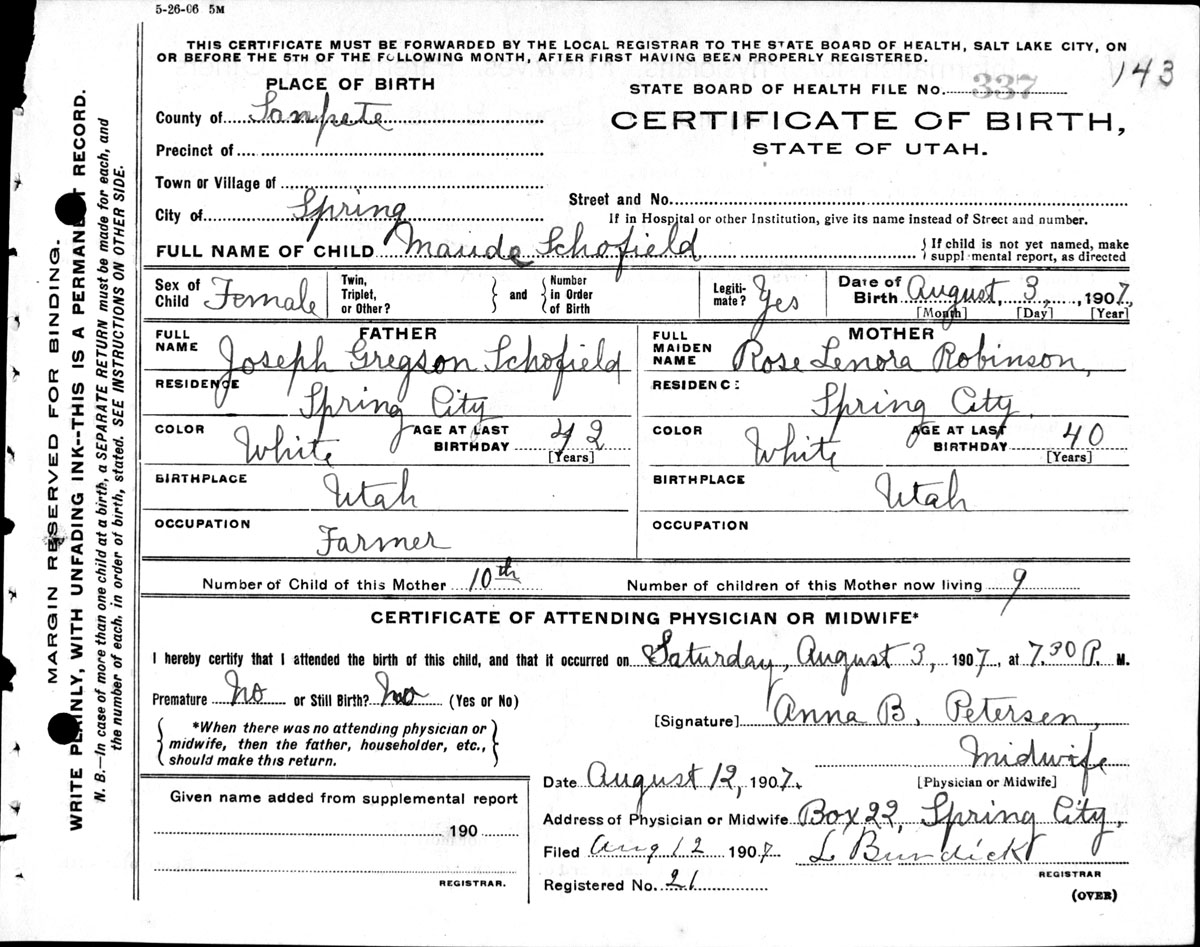 5-26-06 5M
THIS CERTIFICATE MUST BE FORWARDED BY THE LOCAL REGISTRAR TO THE STATE BOARD OF HEALTH, SALT LAKE CITY, ON
OR BEFORE THE 5TH OF THE FOLLOWING MONTH, AFTER FIRST HAVING BEEN PROPERLY REGISTERED.
143
PLACE OF BIRTH
STATE BOARD OF HEALTH FILE No. 337
County of Sanpete
CERTIFICATE OF BIRTH,
STATE OF UTAH.
Precinct of
Town or Village of
Street and No.
City of Spring
If in Hospital or other Institution, give its name instead of Street and number.
FULL NAME OF CHILD Maude Schofield
{ If child is not yet named, make
suppl mental report, as directed
Sex of Child Female
Twin, Triplet, or Other? } and { Number in Order of Birth
Legiti-mate? Yes
Date of Birth August, 3, 1907.
[Month] [Day] [Year]
FATHER
FULL NAME Joseph Gregson Schofield
RESIDENCE Spring City
COLOR White
AGE AT LAST BIRTHDAY 42
[Years]
BIRTHPLACE Utah
OCCUPATION Farmer
MOTHER
FULL MAIDEN NAME Rose Lenora Robinson,
RESIDENC: Spring City
COLOR White
AGE AT LAST BIRTHDAY 40
[Years]
BIRTHPLACE Utah
OCCUPATION
Number of Child of this Mother 10th
Number of children of this Mother now living 9
CERTIFICATE OF ATTENDING PHYSICIAN OR MIDWIFE*
I hereby certify that I attended the birth of this child, and that it occurred on Saturday, August 3, 1907, at 7.30 P. M.
Premature No or Still Birth? No (Yes or No)
[Signature] Anna B. Petersen,
{ *When there was no attending physician or
midwife, then the father, householder, etc.,
should make this return. }
Midwife
[Physician or Midwife]
Date August 12, 1907.
Address of Physician or Midwife Box 22, Spring City.
Filed Aug 12 1907 L Burdick
REGISTRAR
Registered No. 21
(OVER)
Given name added from supplemental report
190
REGISTRAR.
MARGIN RESERVED FOR BINDING.
WRITE PLAINLY, WITH UNFADING INK--THIS IS A PERMANENT RECORD.
N. B.—In case of more than one child at a birth, a SEPARATE RETURN must be made for each, and
the number of each, in order of birth, stated. SEE INSTRUCTIONS ON OTHER SIDE.